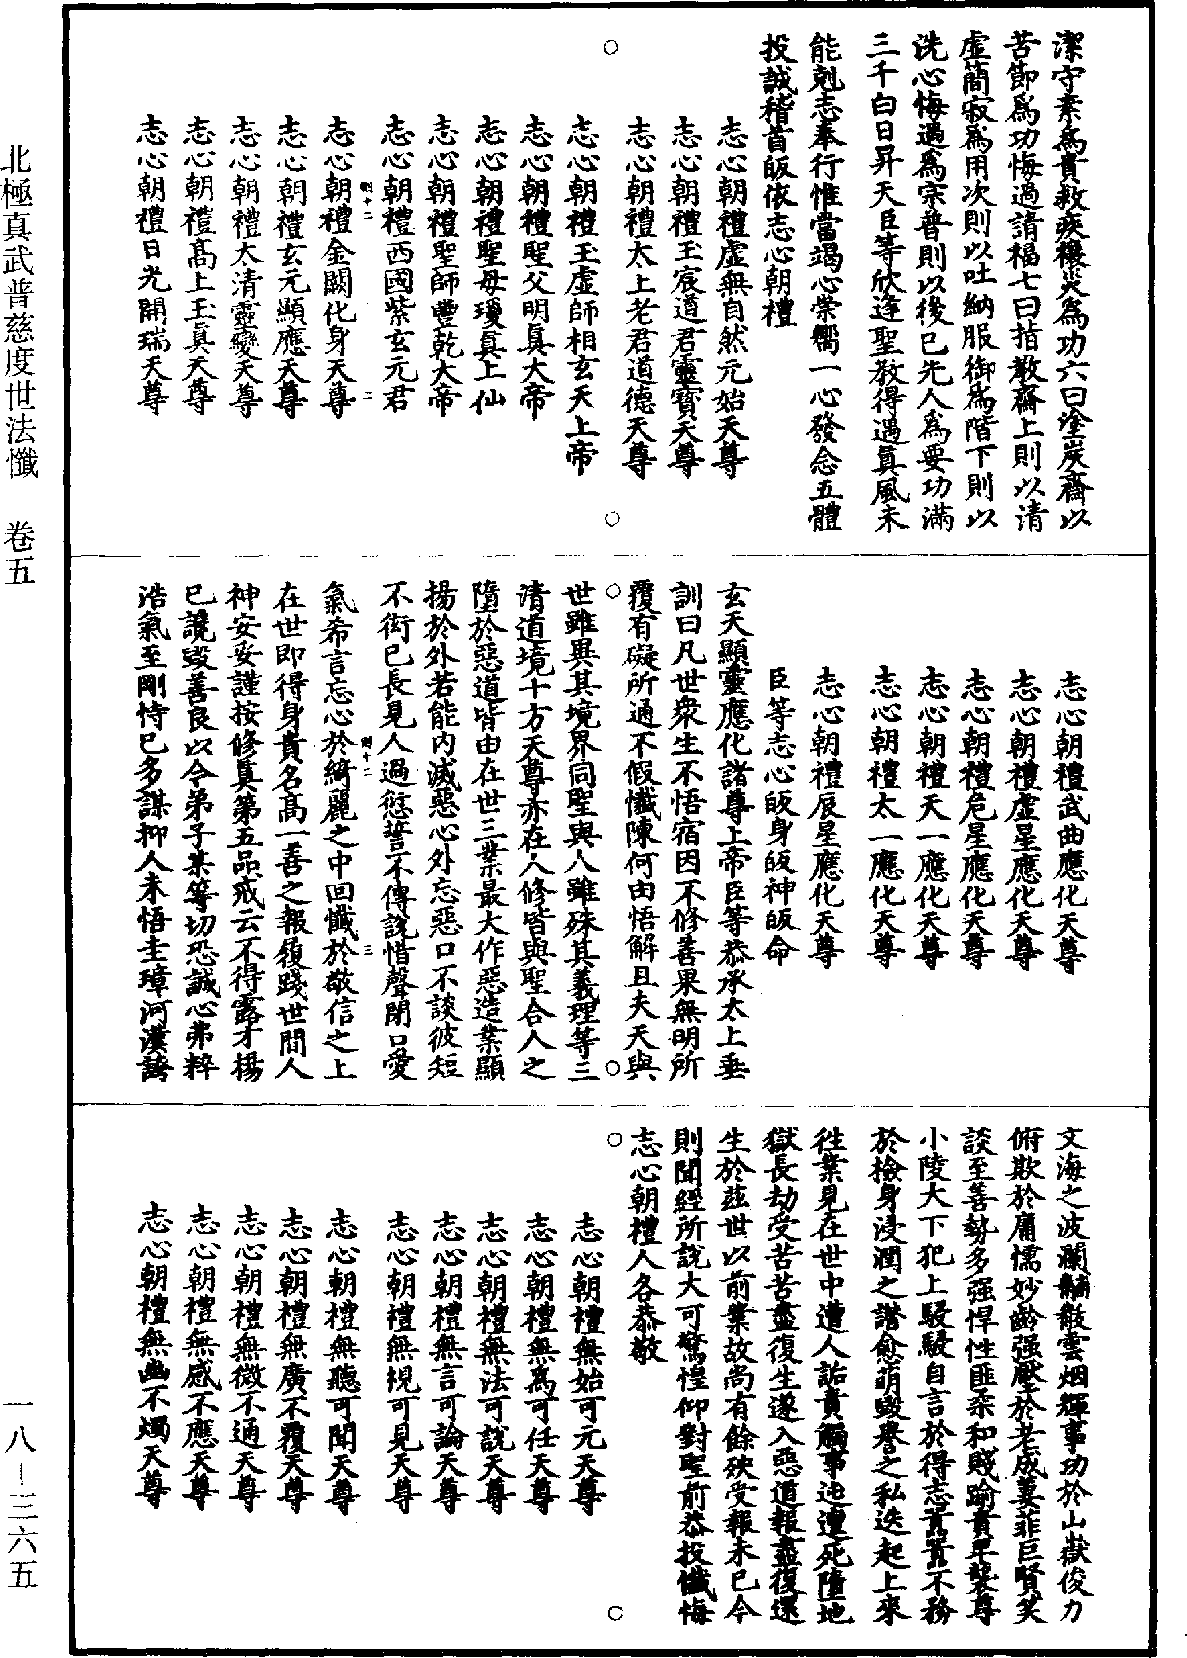 潔守素爲貴救疾禳災爲功六曰塗炭齋以
苦節爲功悔過請福七曰指敎齋上則以清
虛簡寂爲用次則以吐納服御爲階下則以
洗心悔過爲宗普則以後己先人爲要功滿
三千白日昇天臣等欣逢聖敎得遇眞風未
能剋志奉行惟當竭心崇嚮一心發念五體
投誠稽首皈依志心朝禮
志心朝禮虛無自然元始天尊
志心朝禮玉宸道君靈寶天尊
志心朝禮太上老君道德天尊
志心朝禮玉虛師相玄天上帝
志心朝禮聖父明眞大帝
志心朝禮聖母瓊眞上仙
志心朝禮聖師豐乾大帝
志心朝禮西國紫玄元君
志心朝禮金闕化身天尊
志心朝禮玄元顯應天尊
志心朝禮太清靈變天尊
志心朝禮高上玉眞天尊
志心朝禮日光開瑞天尊
志心朝禮武曲應化天尊
志心朝禮虛星應化天尊
志心朝禮危星應化天尊
志心朝禮天一應化天尊
志心朝禮太一應化天尊
志心朝禮辰星應化天尊
臣等志心皈身皈神皈命
玄天顯靈應化諸尊上帝臣等恭承太上垂
訓曰凡世衆生不悟宿因不修善果無明所
覆有礙所通不假懺陳何由悟解且夫天與
世雖異其境界同聖與人雖殊其義理等三
清道境十方天尊亦在人修皆與聖合人之
墮於惡道皆由在世三業最大作惡造業顯
揚於外若能內滅惡心外忘惡口不談彼短
不衒己長見人過愆誓不傳說惜聲閉口愛
氣希言忘心於綺麗之中回懺於敬信之上
在世即得身貴名高一善之報復踐世間人
神安妥謹按修眞第五品戒云不得露才揚
己譏毀善良以今弟子某等切恐誠心弗粹
浩氣至剛恃己多謀抑人未悟圭璋河漢誇
文海之波瀾黼黻雲烟輝事功於山嶽俊力
俯欺於庸懦妙齡强壓於老成萋菲巨賢笑
談至善勢多强悍性匪柔和賤踰貴卑襲尊
小陵大下犯上駸駸自言於得志嚚嚚不務
於撿身浸潤之譖愈萌毀譽之私迭起上來
往業見在世中遭人詬責觸事迍邅死墮地
獄長劫受苦苦盡復生遂入惡道報盡復還
生於茲世以前業故尚有餘殃受報未已今
則聞經所說大可驚惶仰對聖前恭投懺悔
志心朝禮人各恭敬
志心朝禮無始可元天尊
志心朝禮無爲可任天尊
志心朝禮無法可說天尊
志心朝禮無言可論天尊
志心朝禮無規可見天尊
志心朝禮無聽可聞天尊
志心朝禮無廣不覆天尊
志心朝禮無微不通天尊
志心朝禮無感不應天尊
志心朝禮無幽不燭天尊
北極真武普慈度世法懺 卷五
一八—三六五